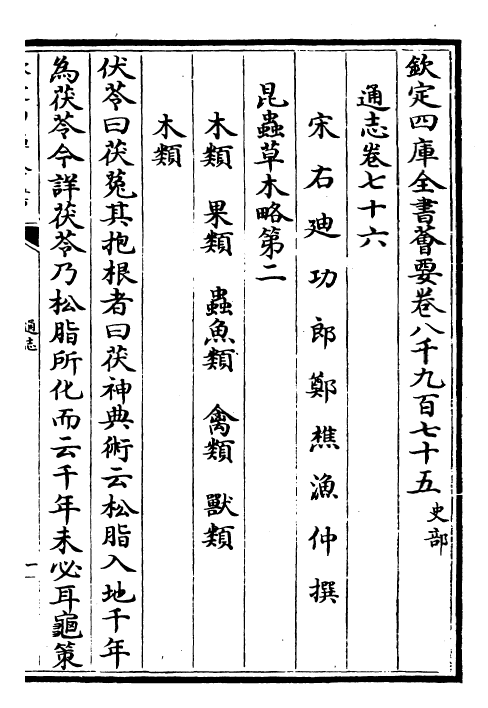 欽定四庫全書薈要卷八千九百七十五 史部
通志卷七十六
宋右廸功郎鄭樵漁仲撰
昆蟲草木略第二
木類 果類 蟲魚類 禽類 獸類
木類
伏苓曰茯菟其抱根者曰茯神典術云松脂入地千年
為茯苓今詳茯苓乃松脂所化而云千年未必耳龜策
通志
一